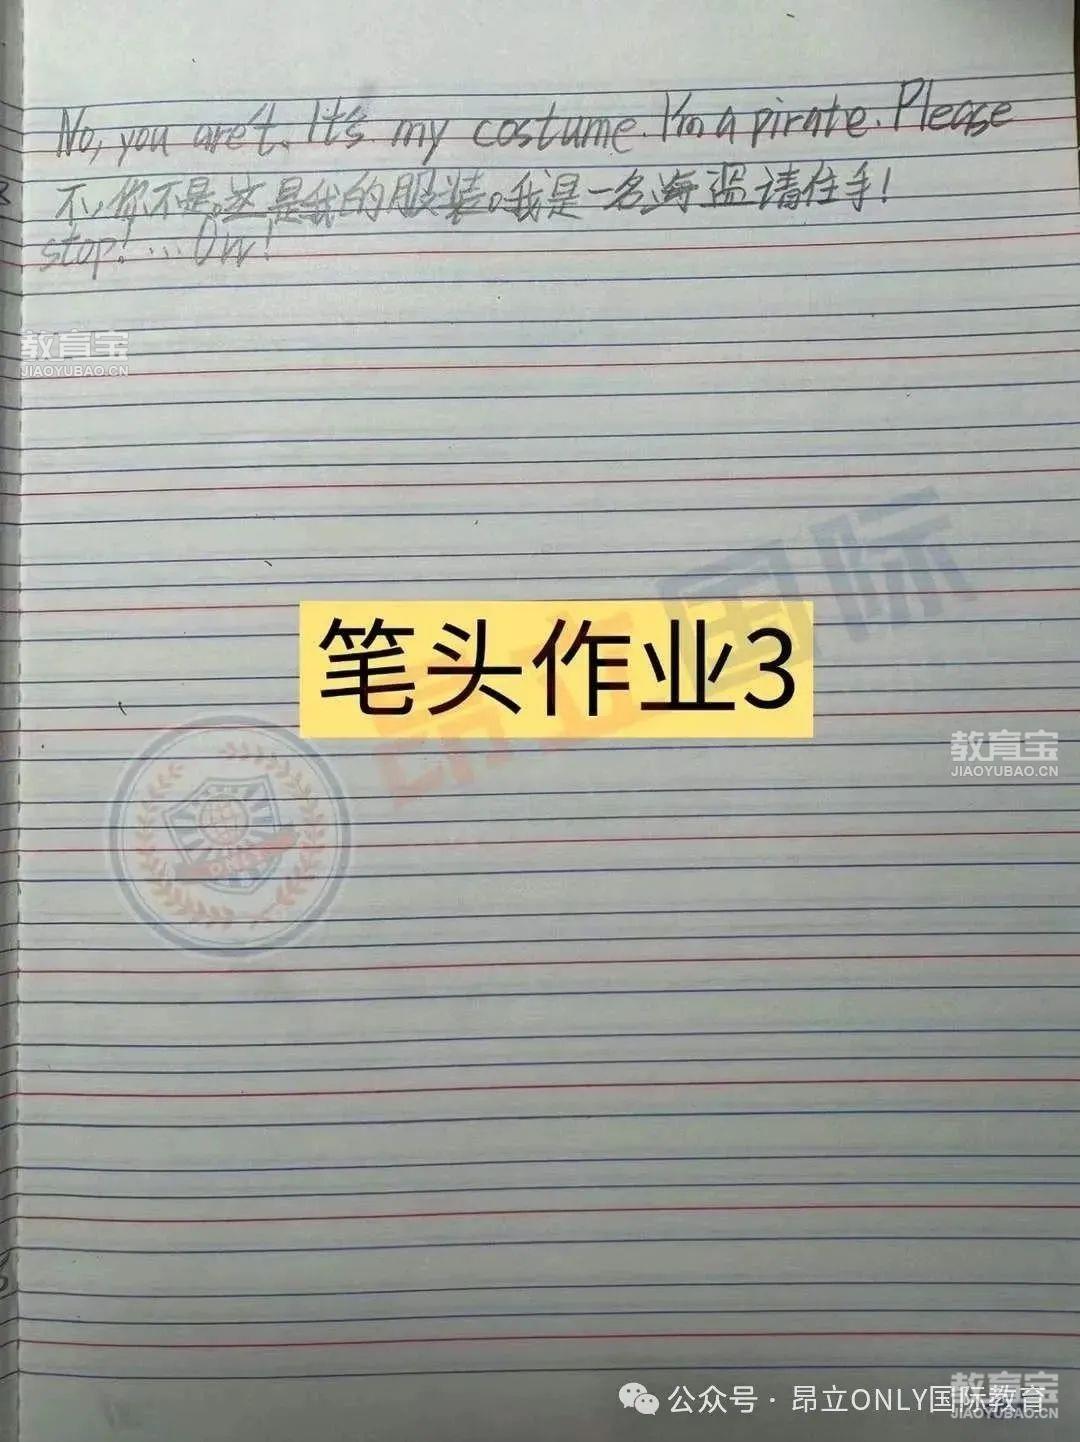 No, you are't. It's my costume. I'm a pirate. Please
不,你不是。这是我的服装。我是一名海盗请住手!
stop!...Ow!
教育宝
JIAOYUBAO.CN
昂立国际
笔头作业3
教育宝
JIAOYUBAO.CN
教育宝
JIAOYUBAO.CN
公众号 · 昂立ONLY国际教育